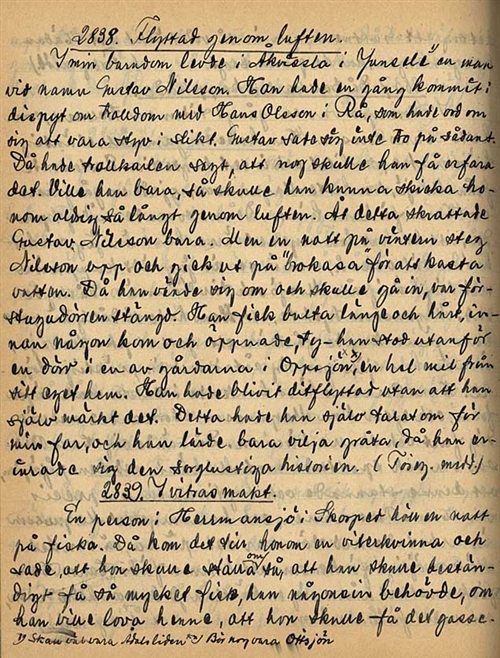 2838. Flyttad genom luften.
I min barndom levde i Åkvissla i Junsele en man
vid namn Gustav Nilsson. Han hade en gång kommit i
dispyt om trolldom med Hans Olsson i Rå, som hade ord om
sig att vara styv i slikt. Gustav sade sig inte tro på sådant.
Då hade trollkarlen sagt, att nog skulle han få erfara
det. Ville han bara, så skulle han kunna skicka ho-
nom aldrig så långt genom luften. Åt detta skrattade
Gustav Nilsson bara. Men en natt på vintern steg
Nilsson upp och gick ut på "brokasa" för att kasta
vatten. Då han vände sig om och skulle gå in, var för-
stugudörren stängd. Han fick bulta länge och hårt, in-
nan någon kom och öppnade, ty han stod utanför
en dörr i en av gårdarna i Oppsjön, en hel mil från
sitt eget hem. Han hade blivit ditflyttad utan att han
själv märkt det. Detta hade han själv talat om för
min far, och han lärde bara vilja gråta, då han er-
inrade sig den sorglustiga historien. (Töirg. medd.)
2839. I vitras makt.
En person i Herrmansjö i Skorped höll en natt
på fiska. Då kom det till honom en viterkvinna och
sade, att hon skulle ställa om så, att han skulle bestän-
digt få så mycket fisk, han någonsin behövde, om
han ville lova henne, att hon skulle få det gosse-
1) Skall väl vara Ådalsliden 2) Bör nog vara Ottsjön